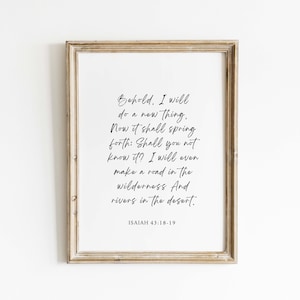 Behold, I will
do a new thing,
Now it shall spring
forth; Shall you not
know it? I will even
make a road in the
wilderness And
rivers in the desert.
ISAIAH 43:18-19